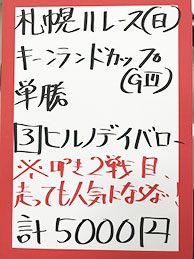 札幌11レース(日)
キーンランドカップ
(GⅢ)
単勝
③ヒルノデイバロー
※叩き2戦目、
走っても人気にならない!
計5000円